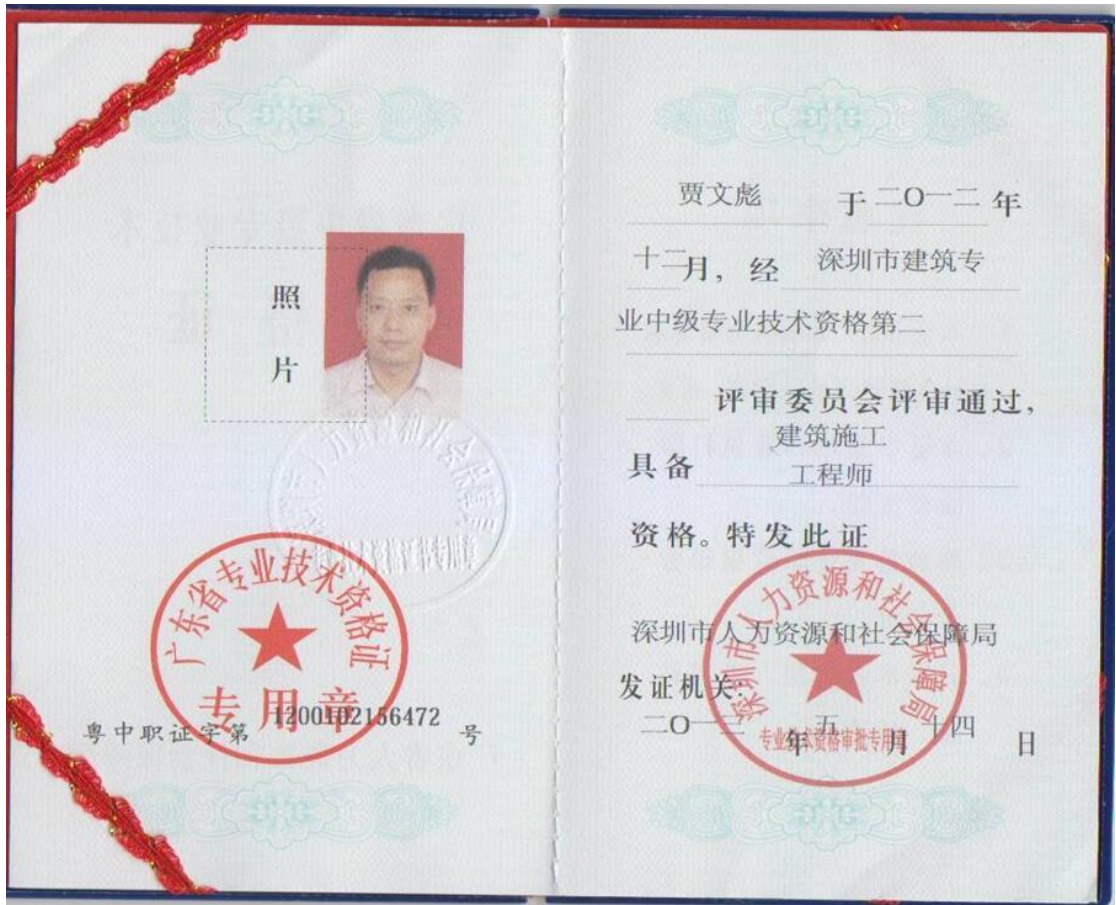 照
片
广东省专业技术资格证
专用章
粤中职证字第 1200102156472 号
贾文彪 于 二O一二 年
十二月，经 深圳市建筑专
业中级专业技术资格第二
评审委员会评审通过，
建筑施工
具备 工程师
资格。特发此证
深圳市人力资源和社会保障局
发证机关：
二O一三 年 五 月 十四 日
深圳市人力资源和社会保障局
专业技术资格审批专用章